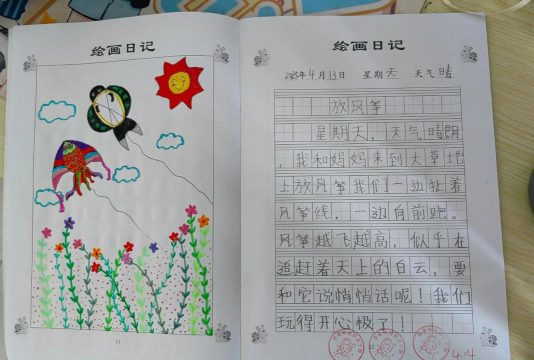 绘画日记
绘画日记
2025年4月13日 星期天 天气晴
放风筝
星期天,天气晴朗
,我和妈妈来到大草地
上放风筝我们一边扯着
风筝线,一边向前跑。
风筝越飞越高,似乎在
追赶着天上的白云,要
和它说悄悄话呢!我们
玩得开心极了!
4.14